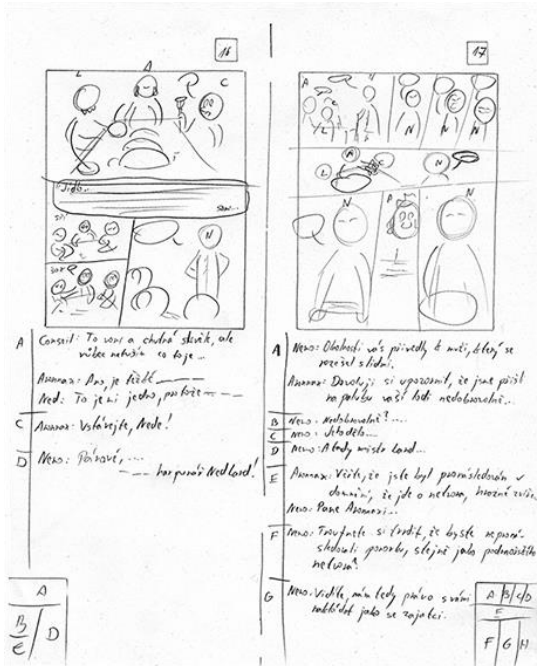 16
L
A
C
Jídlo...
N
A
Conseil: To voní a chutná skvěle, ale
vůbec netuším co to je...
Aronnax: Ano, je těžké
Ned: To je mi jedno, protože
C
Aronnax: Vstávejte, Nede!
D
Nemo: Pánové, ....
harpunář Ned Land!
A
B
C
D
17
A
N
L
C
N
N
N
L
A
C
N
N
A
N
A
Nemo: Okolnosti vás přivedly k muži, který se
rozešel s lidmi.
Aronnax: Dovoluji si upozornit, že jsme přišli
na palubu vaší lodi nedobrovolně...
B
Nemo: Nedobrovolně?....
C
Nemo:
D
Nemo: A tady mistr Land...
E
Aronnax: Věřte, že jste byl pronásledován v
domnění, že jde o netvora, hrozné zvíře.
Nemo: Pane Aronnaxi...
F
Nemo: Troufnete si tvrdit, že byste nepronásledovali
ponorku, stejně jako podmořského
netvora?
G
Nemo: Vidíte, mám tedy právo s vámi
nakládat jako se zajatci.
A
B
C
D
E
F
G
H